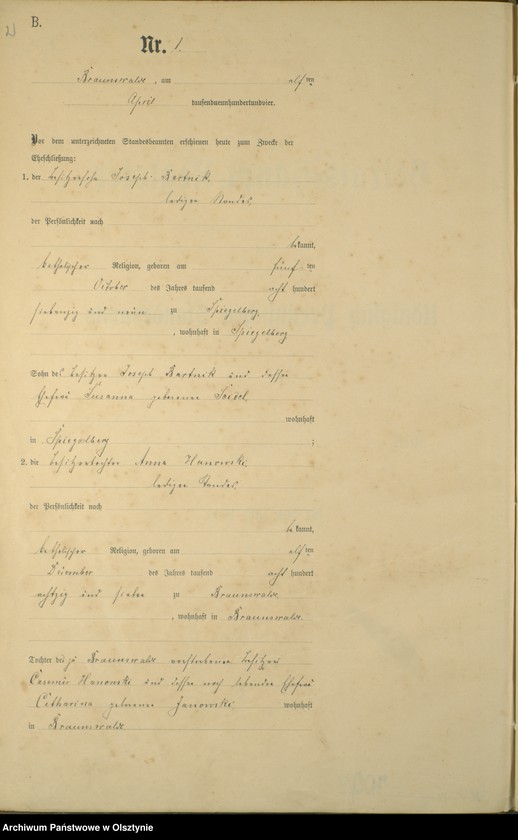 B.
Nr. 1.
Braunswalde, am elf ten
April tausendneunhundertundvier.
Vor dem unterzeichneten Standesbeamten erschienen heute zum Zwecke der
Eheschließung:
1. der Besitzersohn Joseph Bertnik
ledigen Standes,
der Persönlichkeit nach
bekannt,
katholischer Religion, geboren am fünf ten
October des Jahres tausend acht hundert
siebenzig und neun zu Spiegelberg
, wohnhaft in Spiegelberg
Sohn des Besitzer Joseph Bertnik und dessen
Ehefrau Susanna geborenen
wohnhaft
in Spiegelberg ;
2. die Besitzertochter Anna Hanowski
ledigen Standes,
der Persönlichkeit nach
bekannt,
katholischer Religion, geboren am elf ten
December des Jahres tausend acht hundert
achtzig und sieben zu Braunswalde
, wohnhaft in Braunswalde.
Tochter des zu Braunswalde verstorbenen Besitzers
Hanowski und dessen noch lebenden Ehefrau
Catharina geborenen Janowski wohnhaft
in Braunswalde
Archiwum Państwowe w Olsztynie